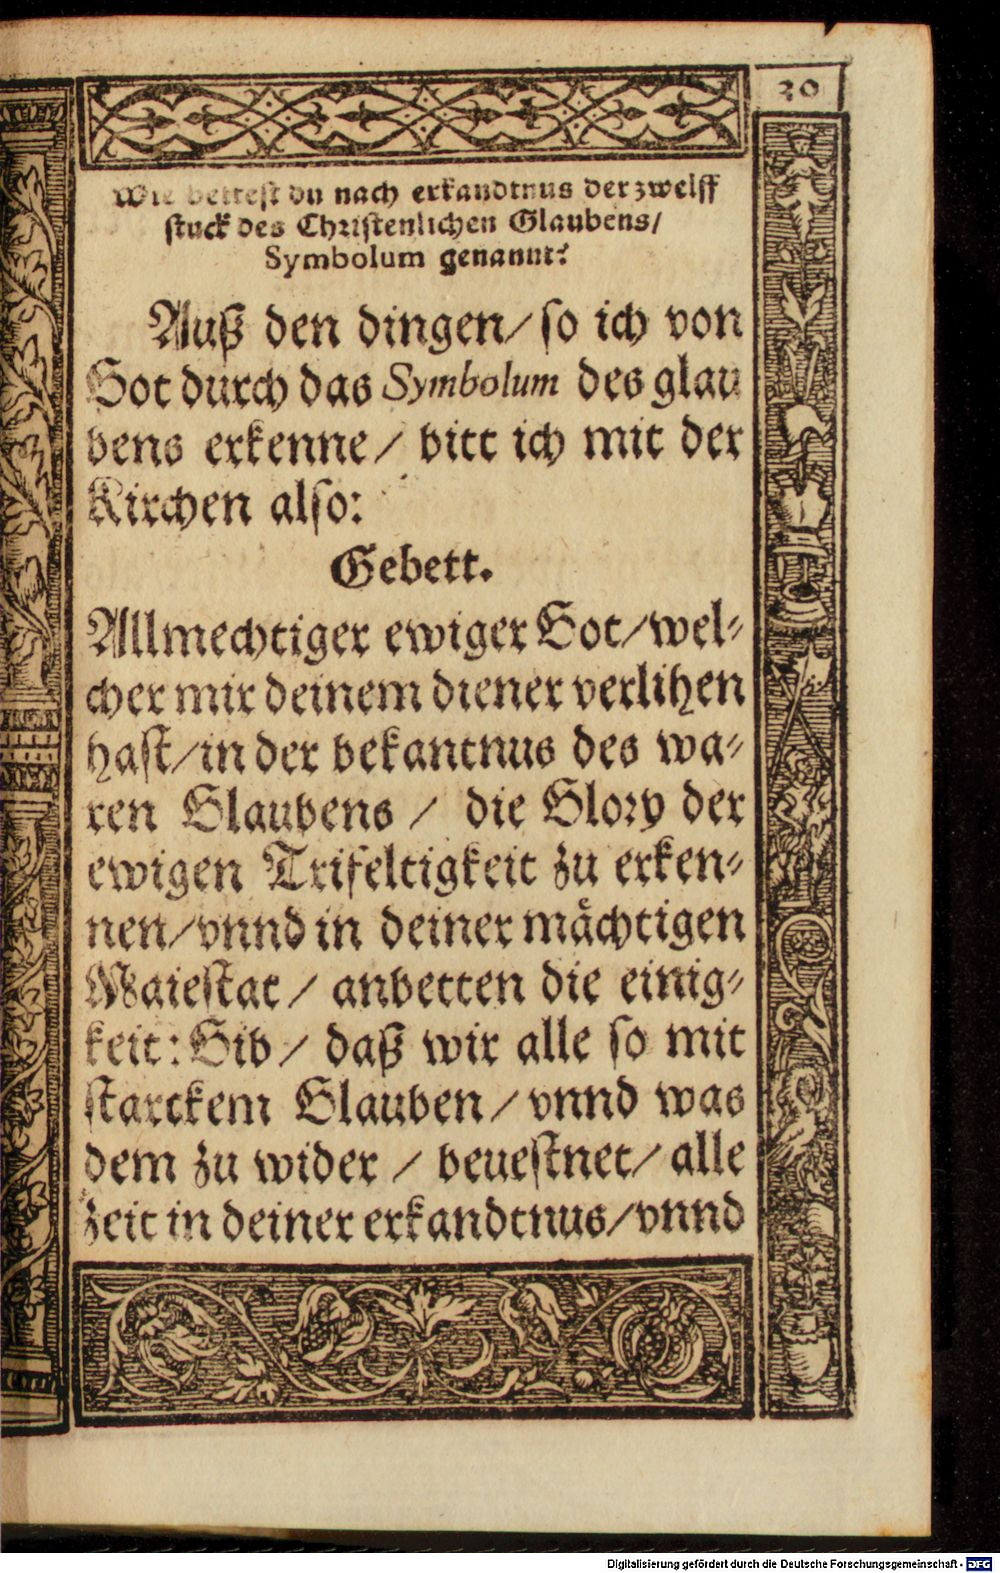 30
Wie bettest du nach erkandtnus der zwelff
stuck des Christenlichen Glaubens/
Symbolum genannt?
Auß den dingen/ so ich von
Got durch das Symbolum des glau
bens erkenne/ bitt ich mit der
Kirchen also:
Gebett.
Allmechtiger ewiger Got/ wel-
cher mir deinem diener verlihen
hast/ in der bekantnus des wa-
ren Glaubens/ die Glory der
ewigen Trifeltigkeit zu erken-
nen/ vnnd in deiner mächtigen
Maiestat/ anbetten die einig-
keit: Gib/ daß wir alle so mit
starckem Glauben/ vnnd was
dem zu wider/ beuestnet/ alle
zeit in deiner erkandtnus/ vnnd
Digitalisierung gefördert durch die Deutsche Forschungsgemeinschaft - DFG